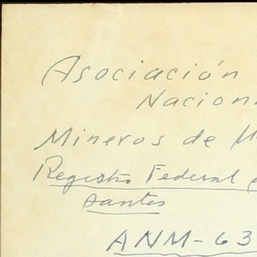 Asociación
Nacion
Mineros de M
Registro Federal
santes
ANM-63